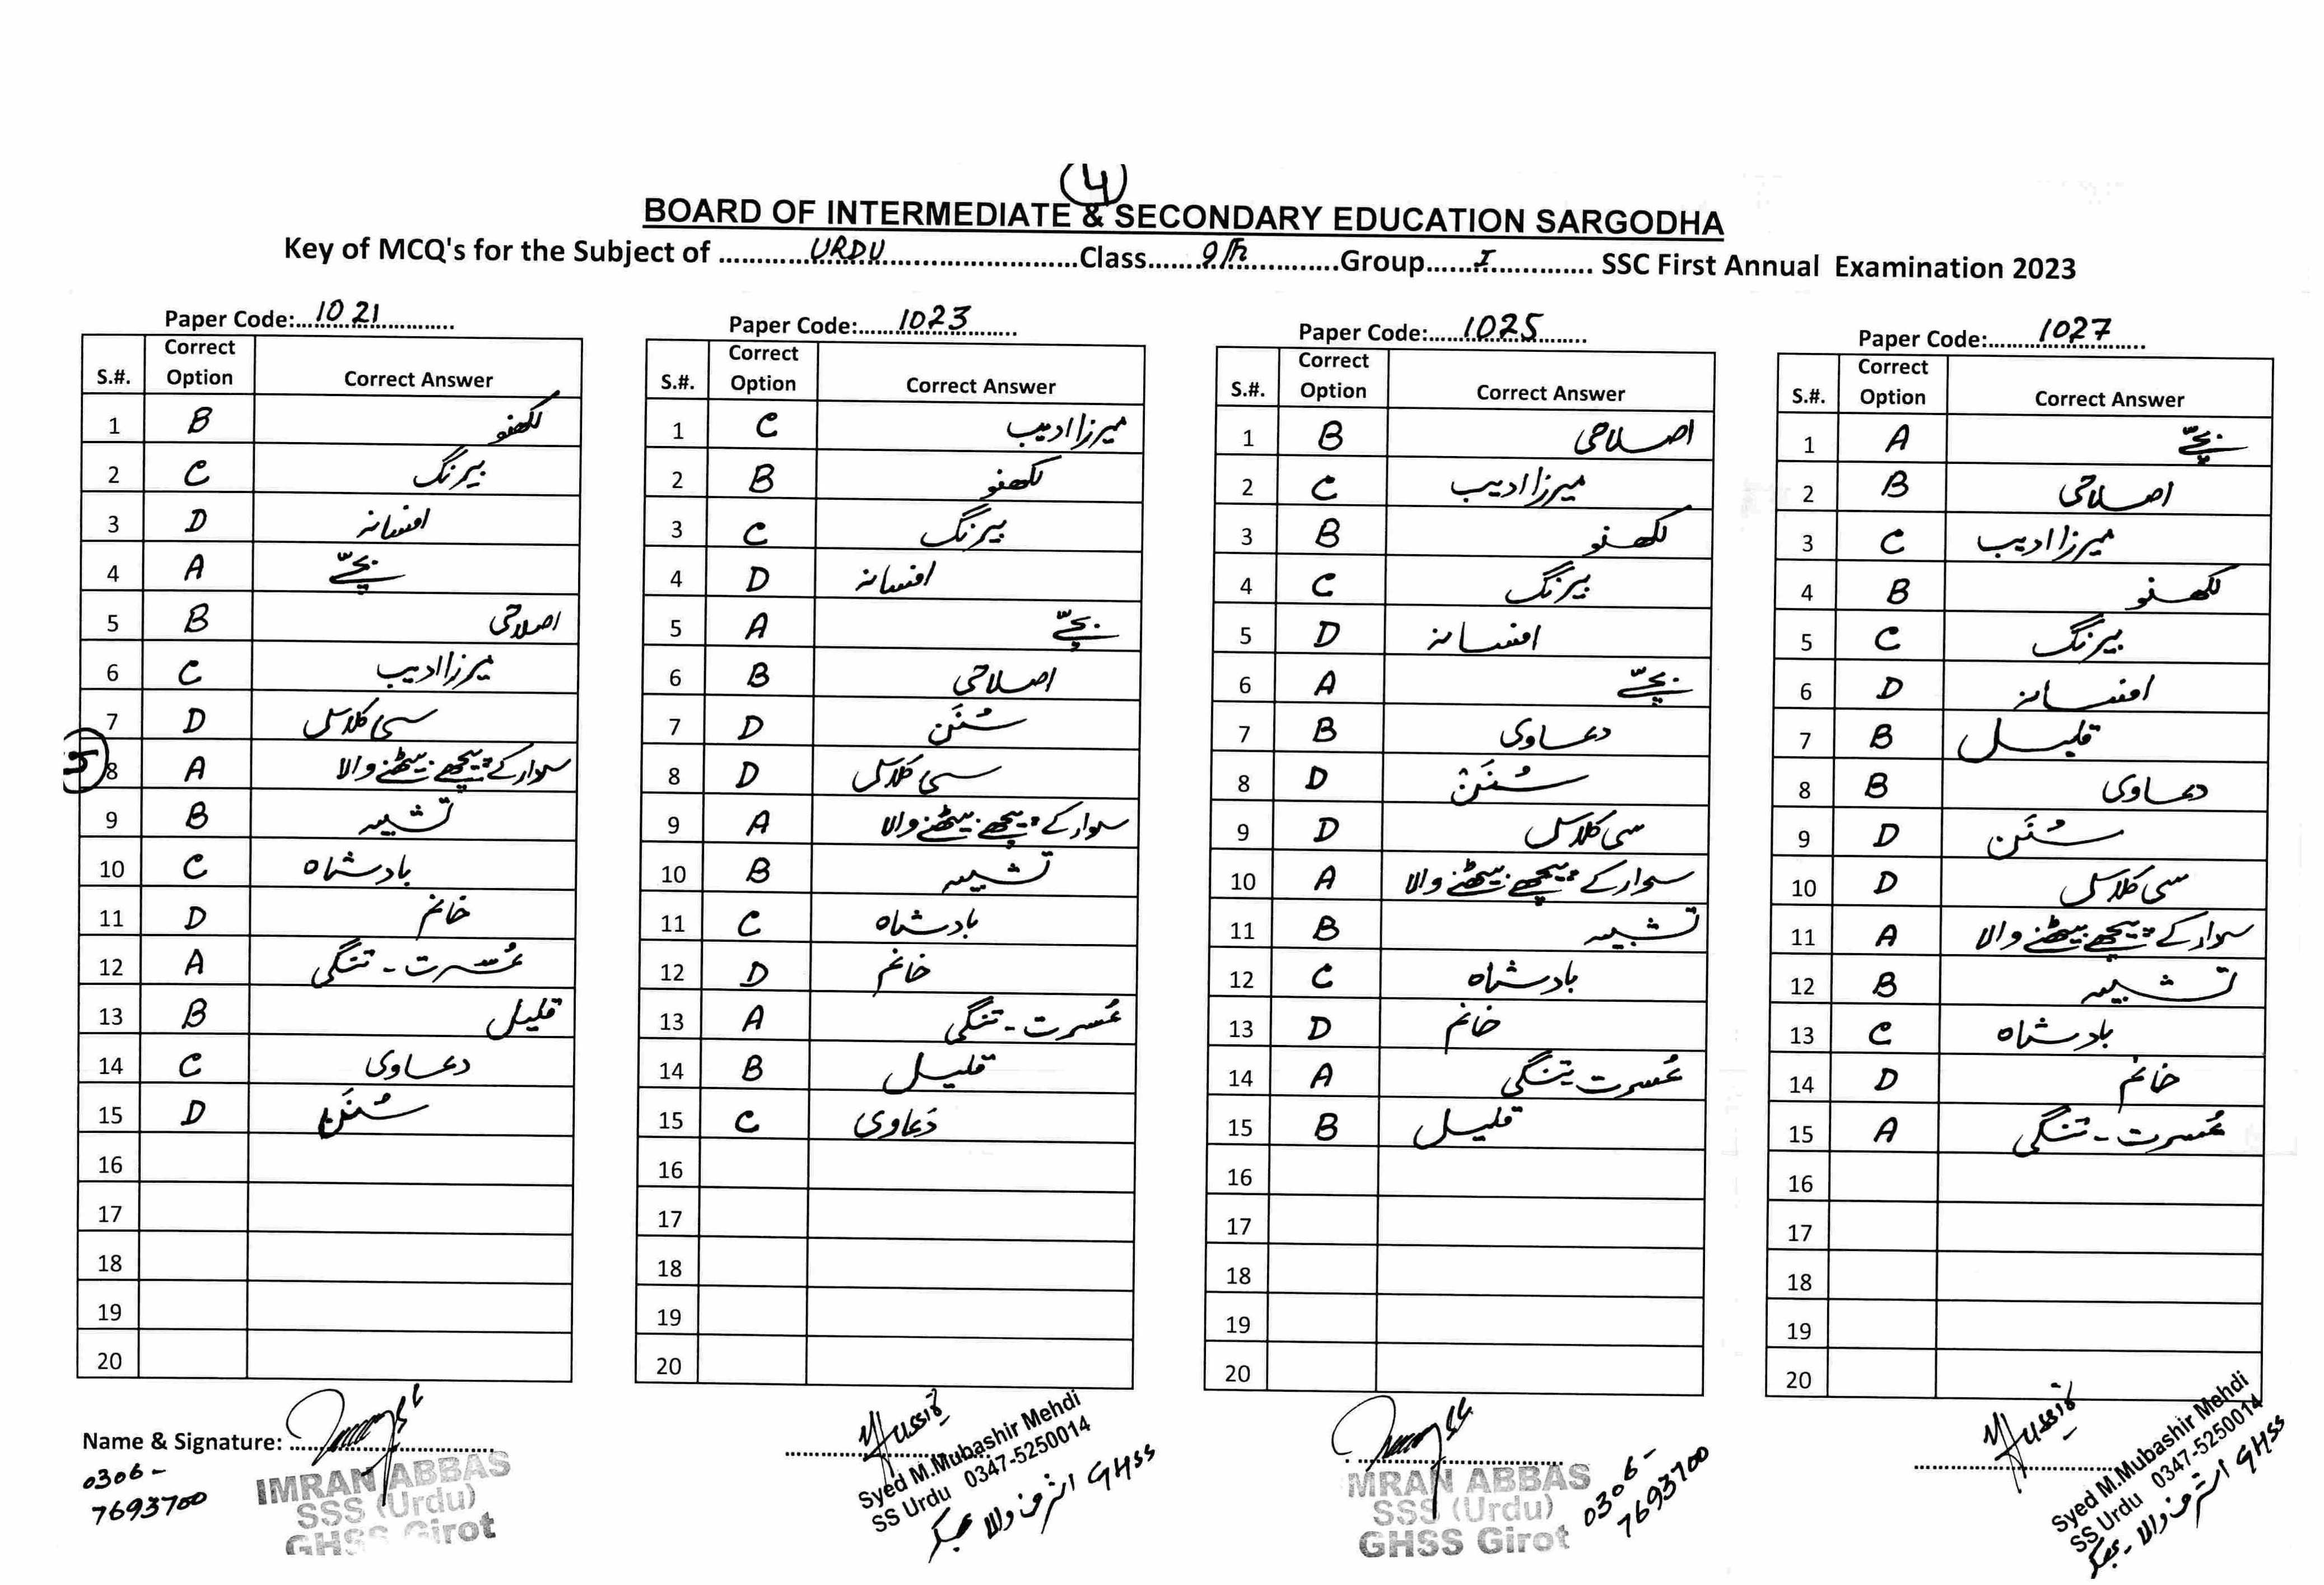 (4)
BOARD OF INTERMEDIATE & SECONDARY EDUCATION SARGODHA
Key of MCQ's for the Subject of ........URDU........Class......9th......Group......I...... SSC First Annual Examination 2023
Paper Code:...1021...
S.#. Correct Option Correct Answer
1 B لکھنو
2 C بیرنگ
3 D افسانہ
4 A بچّے
5 B اصلاحی
6 C میرزا ادیب
7 D سی کلاس کی
8 A سوار کے پیچھے بیٹھنے والا
9 B تشبیہ
10 C بادشاہ
11 D خانم
12 A عُسرت - تنگی
13 B قلیل
14 C دعاوی
15 D سُنَن
16
17
18
19
20
Name & Signature: ........
0306-
7693700
IMRAN ABBAS
SSS (Urdu)
GHSS Girot
Paper Code:...1023...
S.#. Correct Option Correct Answer
1 C میرزا ادیب
2 B لکھنو
3 C بیرنگ
4 D افسانہ
5 A بچّے
6 B اصلاحی
7 D سُنَن
8 D سی کلاس کی
9 A سوار کے پیچھے بیٹھنے والا
10 B تشبیہ
11 C بادشاہ
12 D خانم
13 A عُسرت - تنگی
14 B قلیل
15 C دَعاوی
16
17
18
19
20
Syed M.Mubashir Mehdi
SS Urdu 0347-5250014
GHSS
Paper Code:...1025...
S.#. Correct Option Correct Answer
1 B اصلاحی
2 C میرزا ادیب
3 B لکھنو
4 C بیرنگ
5 D افسانہ
6 A بچّے
7 B دعاوی
8 D سُنَن
9 D سی کلاس کی
10 A سوار کے پیچھے بیٹھنے والا
11 B تشبیہ
12 C بادشاہ
13 D خانم
14 A عُسرت - تنگی
15 B قلیل
16
17
18
19
20
MRAN ABBAS
SSS (Urdu)
GHSS Girot
0306-
7693700
Paper Code:...1027...
S.#. Correct Option Correct Answer
1 A بچّے
2 B اصلاحی
3 C میرزا ادیب
4 B لکھنو
5 C بیرنگ
6 D افسانہ
7 B قلیل
8 B دعاوی
9 D سُنَن
10 D سی کلاس کی
11 A سوار کے پیچھے بیٹھنے والا
12 B تشبیہ
13 C بادشاہ
14 D خانم
15 A عُسرت - تنگی
16
17
18
19
20
Syed M.Mubashir Mehdi
SS Urdu 0347-5250014
GHSS